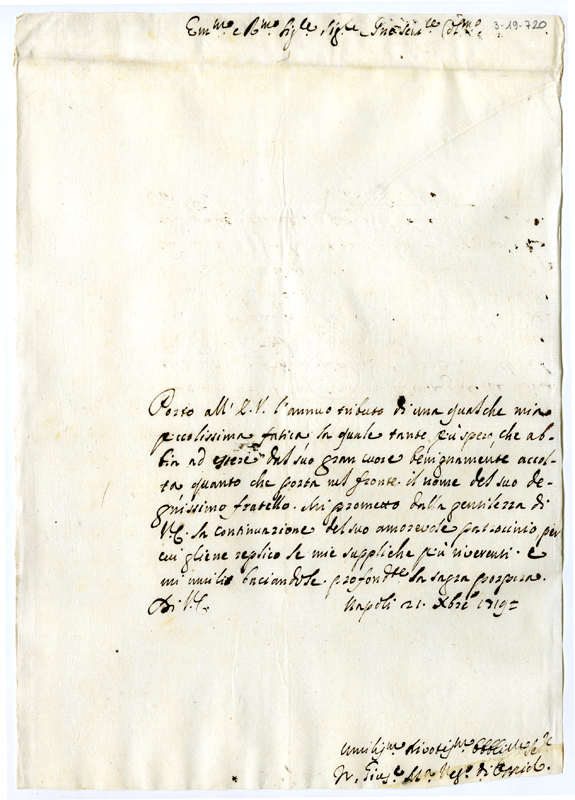 Em.mo e R.mo Sig.re Sig.re P.ne Col.mo
3-19-720
Porto all' E. V. l'annuo tributo di una qualche mia
piccolissima fatica la quale tanto più spero, che ab-
bia ad essere dal suo gran cuore benignamente accol-
ta quanto che porta nel fronte il nome del suo de-
gnissimo fratello. Mi prometto dalla gentilezza di
V. E. la continuazione del suo amorevole patrocinio per
cui gliene replico le mie suppliche più riverenti. e
mi umilio baciandole profond.te la sagra porpora.
Di V. E.
Napoli 21. Xbre
Umiliss.mo divotiss.mo obblig.mo Se.re
di